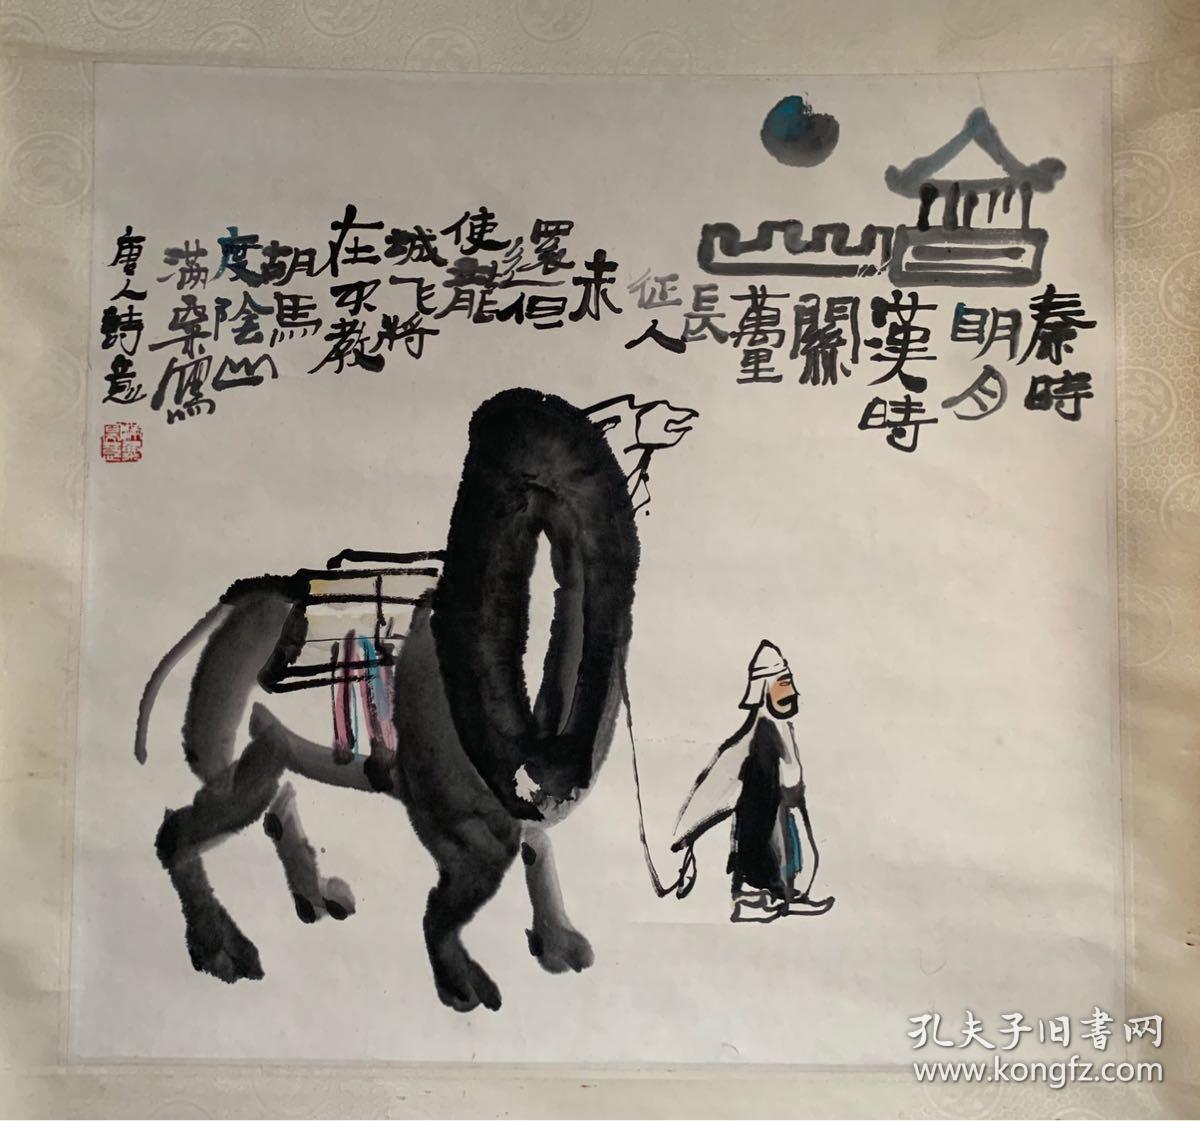 秦時
明月
漢時
關
萬里
長
征人
未
還但
使龍
城飞將
在不教
胡馬
度陰山
唐人詩意
孔夫子旧書网
www.kongfz.com